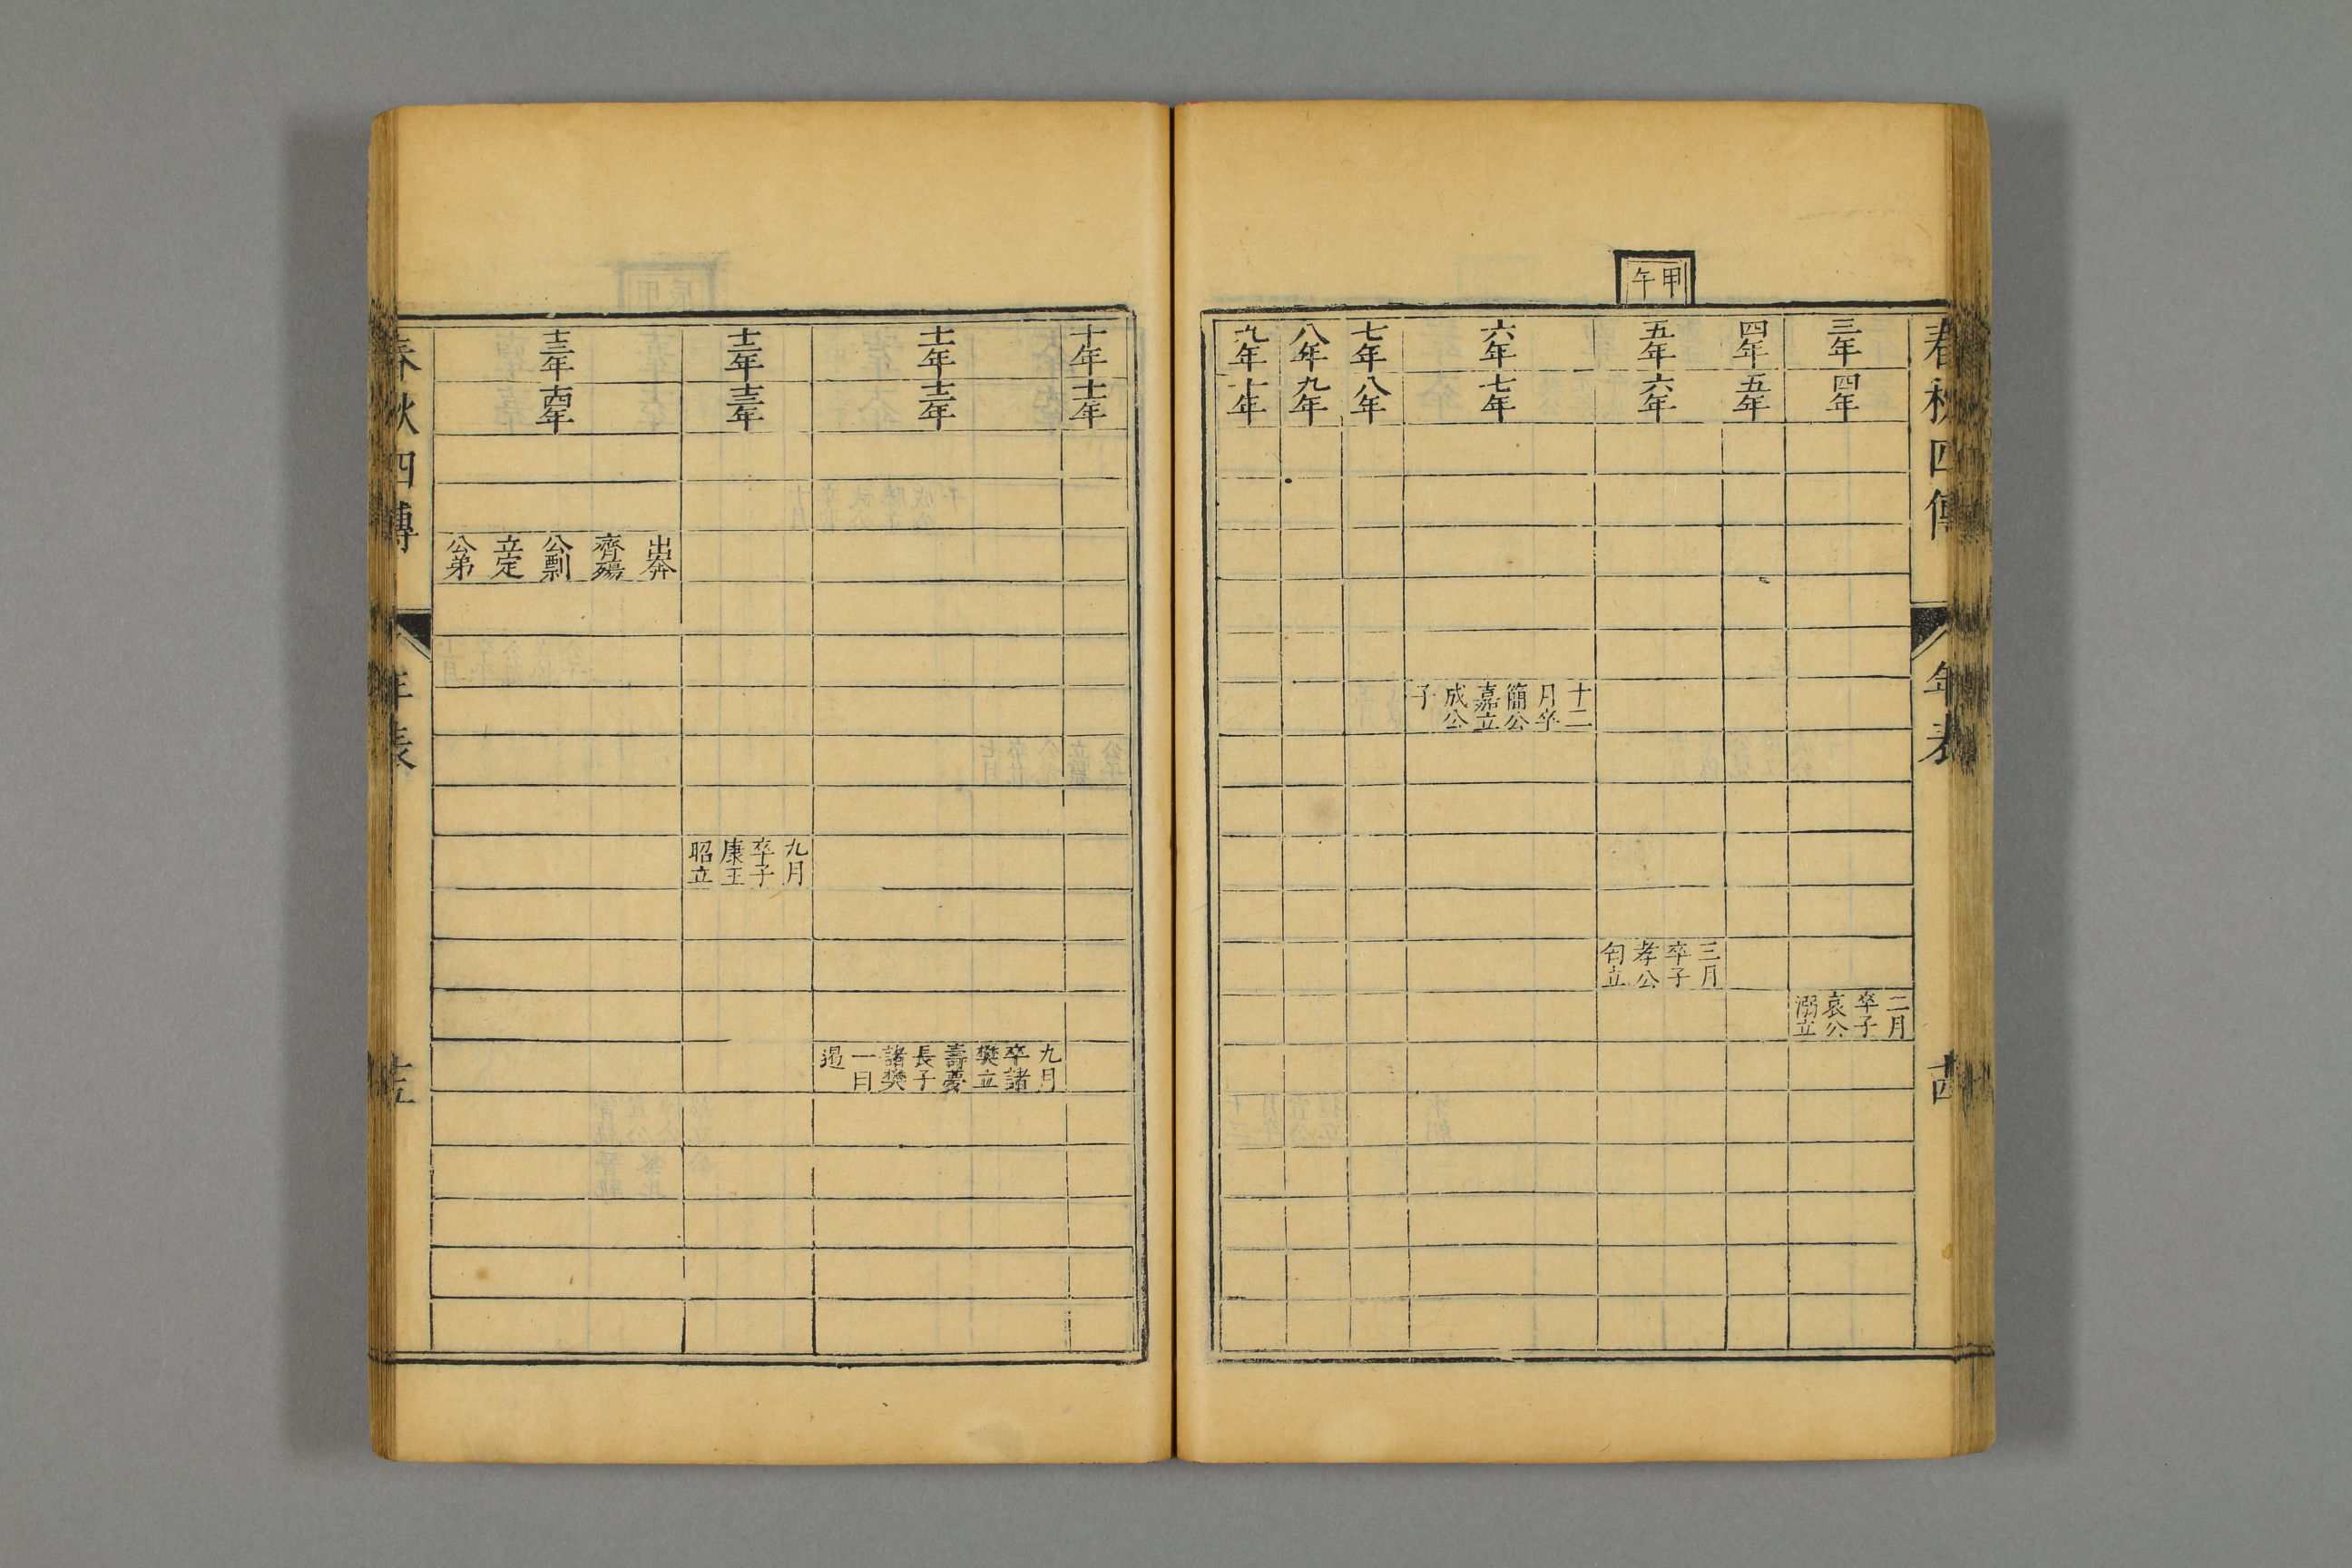 春秋四傳
年表
十四
甲午
三年
四年
二月
卒子
哀公
溺立
四年
五年
五年
六年
三月
卒子
孝公
匄立
六年
七年
十二
月卒
簡公
嘉立
成公
子
七年
八年
八年
九年
九年
十年
十年
十一年
十一年
十二年
九月
卒諸
樊立
壽夢
長子
諸樊
一曰
遏
十二年
十三年
九月
卒子
康王
昭立
十三年
十四年
出奔
齊殤
公剽
立定
公弟
春秋四傳
年表
十五